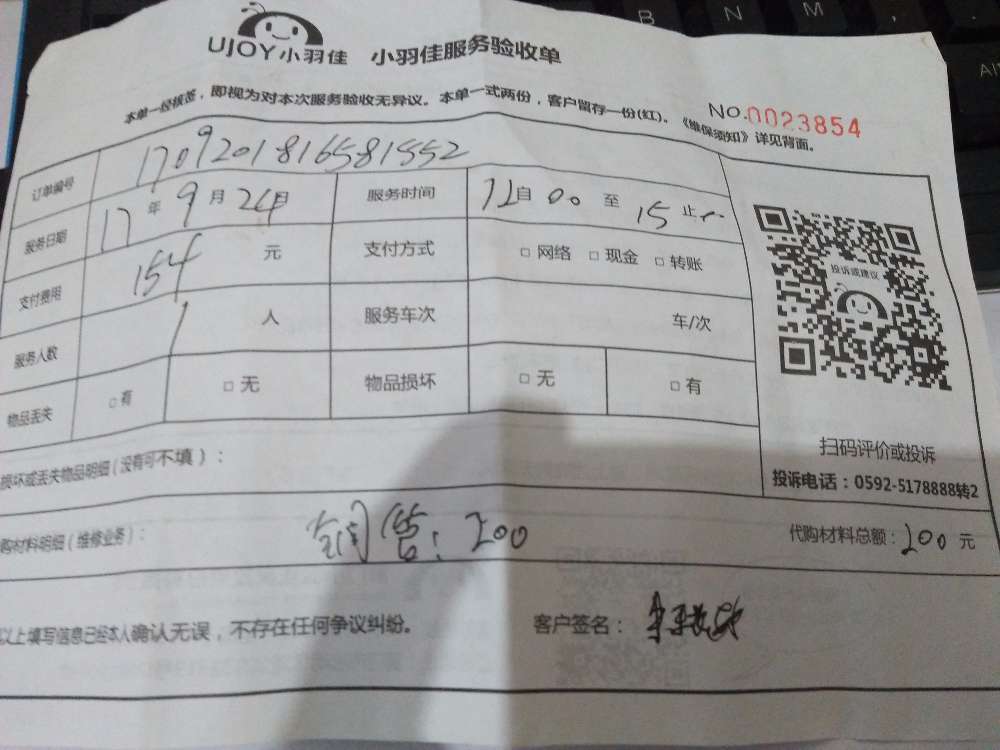 UJOY小羽佳 小羽佳服务验收单
本单一经核签，即视为对本次服务验收无异议。本单一式两份，客户留存一份(红)。《维保须知》详见背面。
NO.0023854
订单编号 1709201816581552
服务日期 17 年 9 月 24日 服务时间 12自 00 至 15 止
支付费用 154 元 支付方式 □ 网络 □ 现金 □ 转账
服务人数 1 人 服务车次 车/次
物品丢失 □ 有 □ 无 物品损坏 □ 无 □ 有
投诉或建议
扫码评价或投诉
投诉电话：0592-5178888转2
损坏或丢失物品明细（没有可不填）：
购材料明细（维修业务）： 管：200 代购材料总额：200 元
以上填写信息已经本人确认无误，不存在任何争议纠纷。 客户签名：
B N M , .